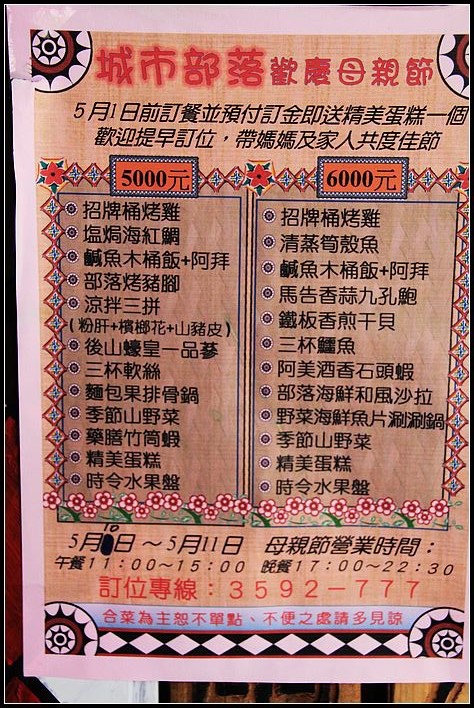 城市部落歡慶母親節
5月1日前訂餐並預付訂金即送精美蛋糕一個
歡迎提早訂位，帶媽媽及家人共度佳節
5000元
招牌桶烤雞
塩焗海紅鯛
鹹魚木桶飯+阿拜
部落烤豬腳
涼拌三拼
(粉肝+檳榔花+山豬皮)
後山蠔皇一品蔘
三杯軟絲
麵包果排骨鍋
季節山野菜
藥膳竹筒蝦
精美蛋糕
時令水果盤
6000元
招牌桶烤雞
清蒸筍殼魚
鹹魚木桶飯+阿拜
馬告香蒜九孔鮑
鐵板香煎干貝
三杯鱷魚
阿美酒香石頭蝦
部落海鮮和風沙拉
野菜海鮮魚片涮涮鍋
季節山野菜
精美蛋糕
時令水果盤
5月10日～5月11日 母親節營業時間：
午餐11：00～15：00 晚餐17：00～22：30
訂位專線：3592－777
合菜為主恕不單點、不便之處請多見諒